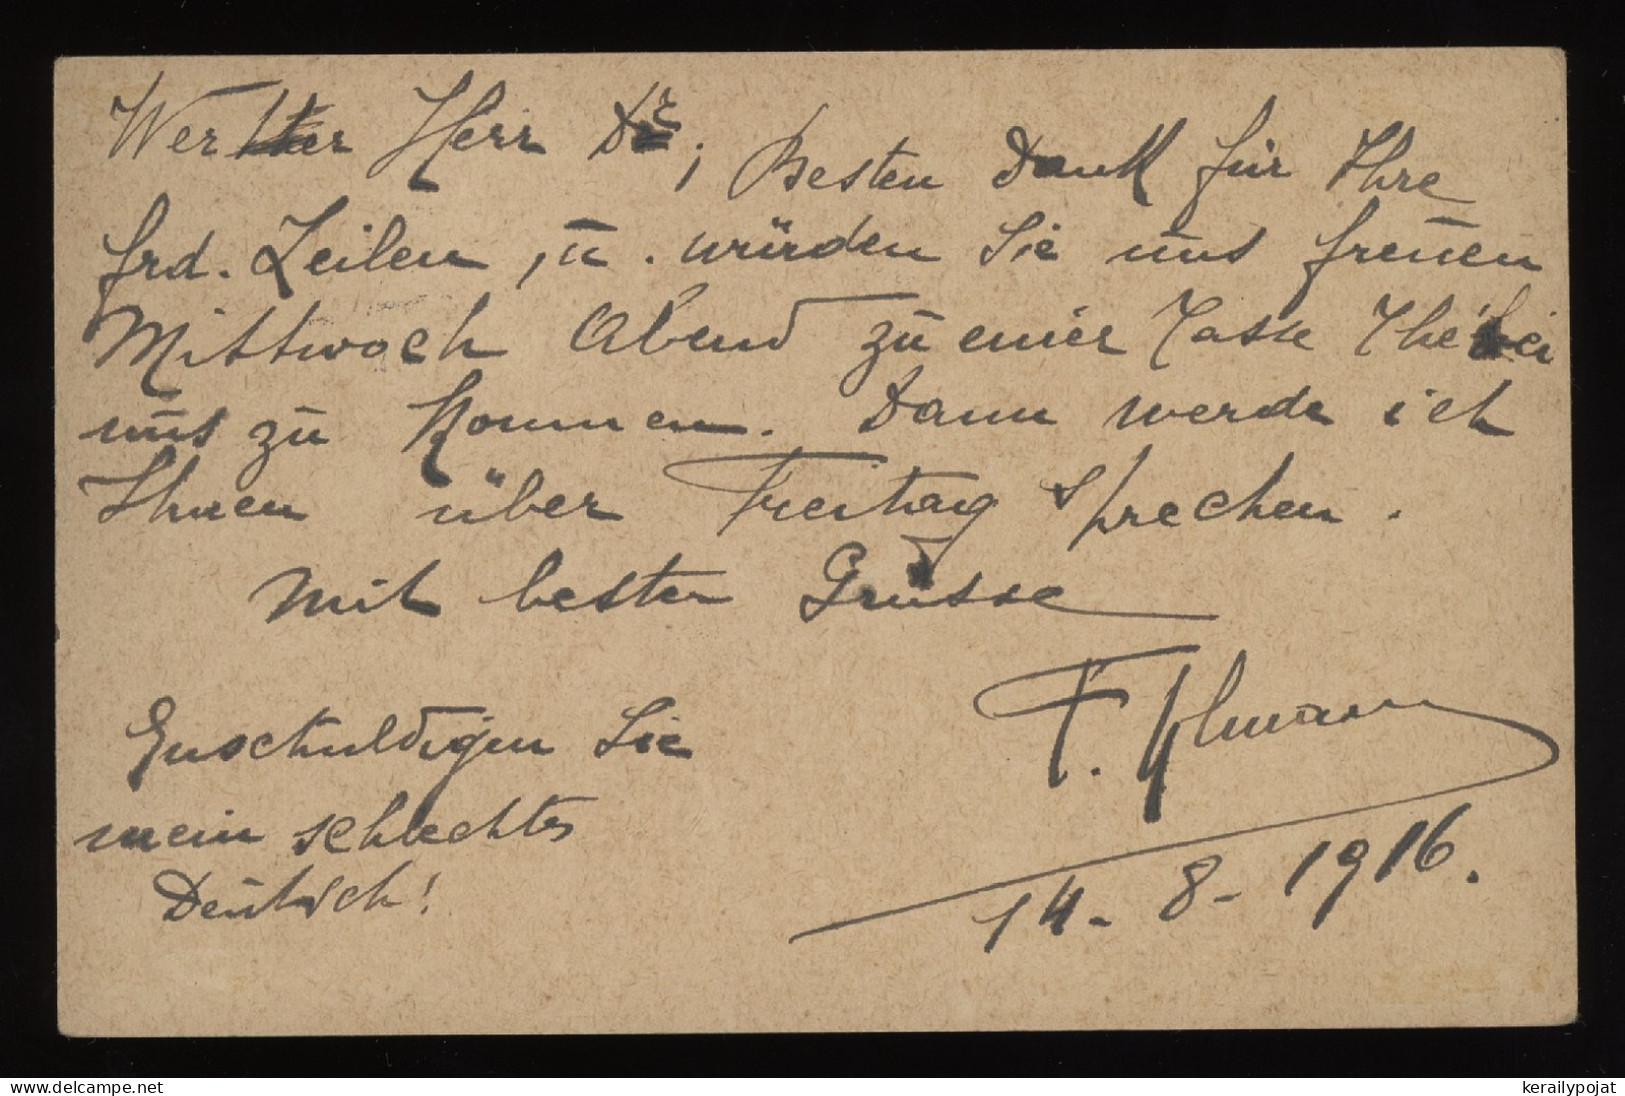 Werter Herr Dr, Besten Dank für Ihre
frd. Zeilen, u. würden Sie uns freuen
Mittwoch Abend zu einer Tasse The bei
uns zu Kommen. Dann werde ich
Ihnen über Freitag sprechen.
Mit besten Grüsse
F.
14-8-1916.
Enschuldigen Sie
mein schlechtes
Deutsch!
delcampe.net
kerailypojat